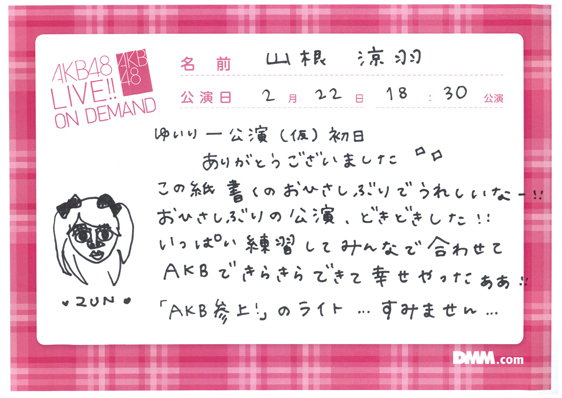 AKB48
LIVE!!
ON DEMAND
AKB
48
名前 山根 涼羽
公演日 2月22日 18:30公演
ゆいりー公演(仮)初日
ありがとうございました
この紙書くのおひさしぶりでうれしいなー!!
おひさしぶりの公演、どきどきした!!
いっぱい練習してみんなで合わせて
AKBできらきらできて幸せやったぁぁ!!
「AKB参上!」のライト…すみません…
ZUN
DMM.com